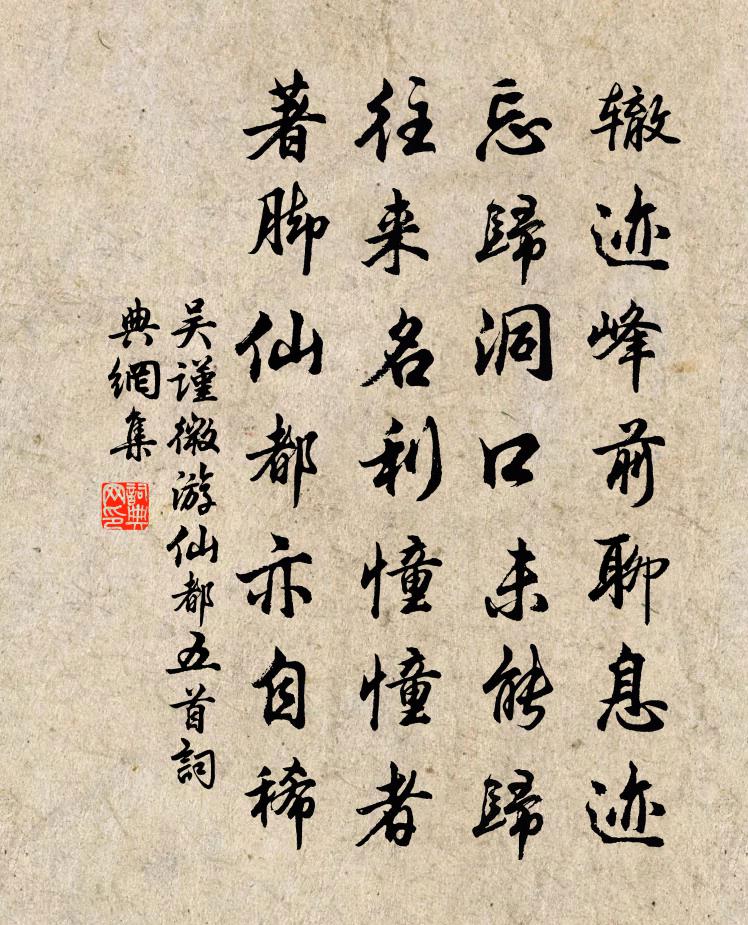 辙迹峰前聊息迹
忘歸洞口未能歸
往来名利憧憧者
著脚仙都亦自稀
吴謹微游仙都五首詞
典網集
詞典网印